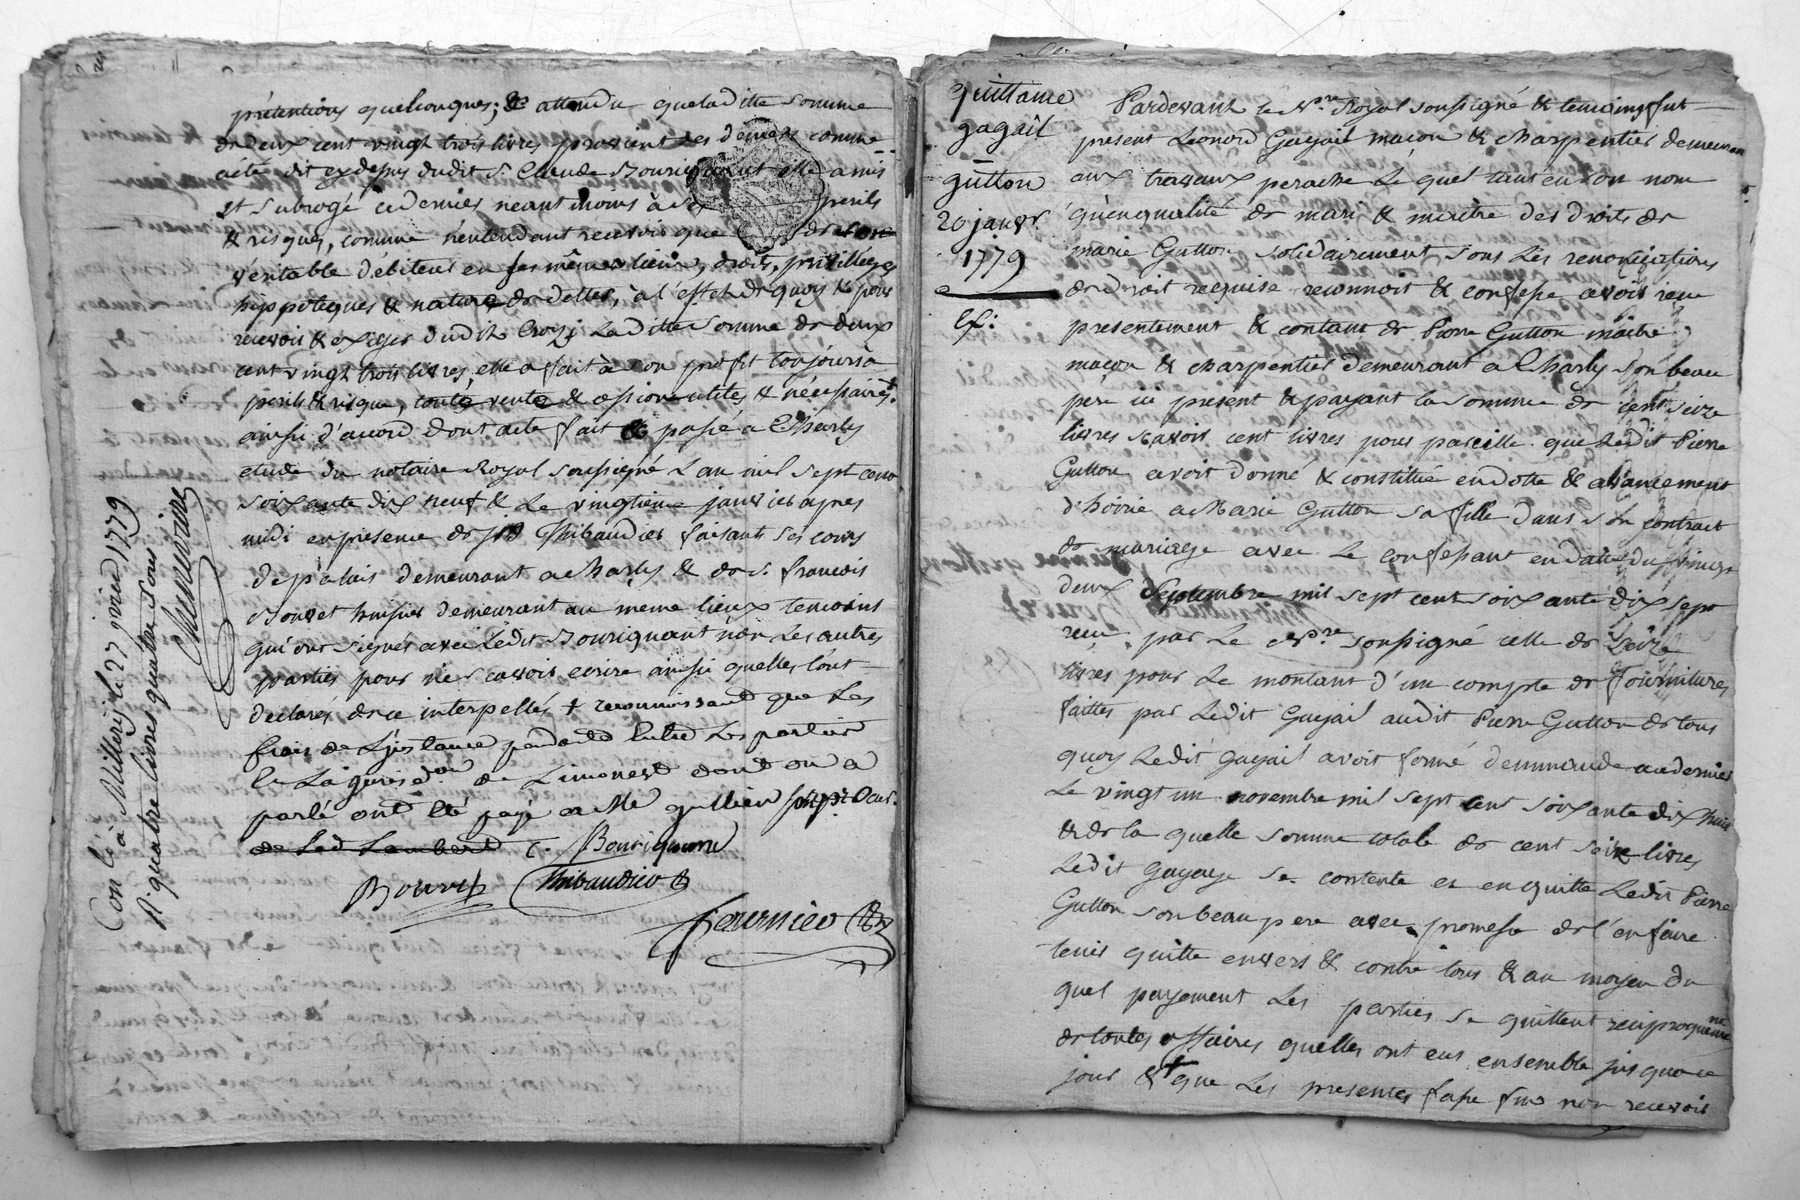 prétentions quelconques; & attendu que laditte somme
de deux cent vingt trois livres provient des deniers comme
a été dit cy dessus dudit Sr. Claude Bourignant elle a mis
et subrogé ce dernier néantmoins à ses périls
& risques, comme n'entendant recevoir que de son
véritable débiteur en ses mêmes lieux, droits, privilléges
hippoteques & nature de dettes, à l'effet de quoy & pour
recevoir & exiger dudit Crozy laditte somme de deux
cent vingt trois livres, elle a fait à son profit toujours à
périls & risque, toute vente & cession utiles & nécessaires.
ainsi d'accord dont acte fait & passé a Charly
etude du notaire Royal soussigné L'an mil sept cent
soixante dix neuf & Le vingtieme janvier apres
midi en presence de Thibaudier faisant ses cours
de palais demeurant a Charly & de s. françois
Bouvet huissier demeurant au meme lieux temoins
qui ont signés avec Ledit Bourignant non Les autres
parties pour ne scavoir ecrire ainsi quelles l'ont
declarés de ce interpellés † reconnoissant que Les
frais de L'jnstance pendante Entre Les parties
En La jurisdon de Limonest dont on a
parlé ont été payé a Me gullien
de Led Lambert C. Bourignant
Bouvet Thibaudier
fournier
Con lé à Millery le 27 jvier 1779
R quatre livres quatre sous
Chenevrier
quittance
gagail
gutton
20 janvr.
1779
Ef:
Pardevant le Nre Royal soussigné & temoins fut
present Leonord Gayail macon & charpentier demeurant
aux travaux perache Le quel tant en son nom
qu'en qualité de mari & maitre des droits de
marie Gutton solidairement sous Les renonciations
de droit requise reconnoit & confesse avoir reçu
presentement & contant de Pierre Gutton maitre
maçon & charpentier demeurant a Charly son beau
pere ici present & payant la somme de cent seize
livres scavoir cent livres pour pareille que Ledit Pierre
Gutton avoit donné & constitué en dotte & avancement
d'hoirie a Marie Gutton sa fille dans son contract
de mariage avec Le confessant en datte du vingt
deux Septembre mil sept cent soixante dix sept
reçu par Le Nre. soussigné celle de Seize
livres pour Le montant d'un compte de fournitures
faittes par Ledit Gayail audit Pierre Gutton de tous
quoy Ledit Gayail avoit formé demmande au dernier
Le vingt un novembre mil sept cent soixante dix huit
& de la quelle somme totale de cent seize livres
Ledit Gayage se contente et en quitte Ledit Pierre
Gutton son beau pere avec promesse de l'en faire
tenir quitte envers & contre tous & au moyen du
quel payement Les parties se quittent reciproquement
de toutes affaires quelles ont eus ensemble jusqua ce
jour & † que Les presentes fasse fins non recevoir